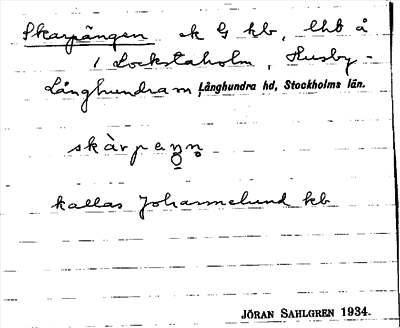 Skarpängen ek G kb, lht å
1 Lockstaholm, Husby-
Långhundra sn, Långhundra hd, Stockholms län.
skàrpeŋn̥
kallas Johannelund kb
JÖRAN SAHLGREN 1934.